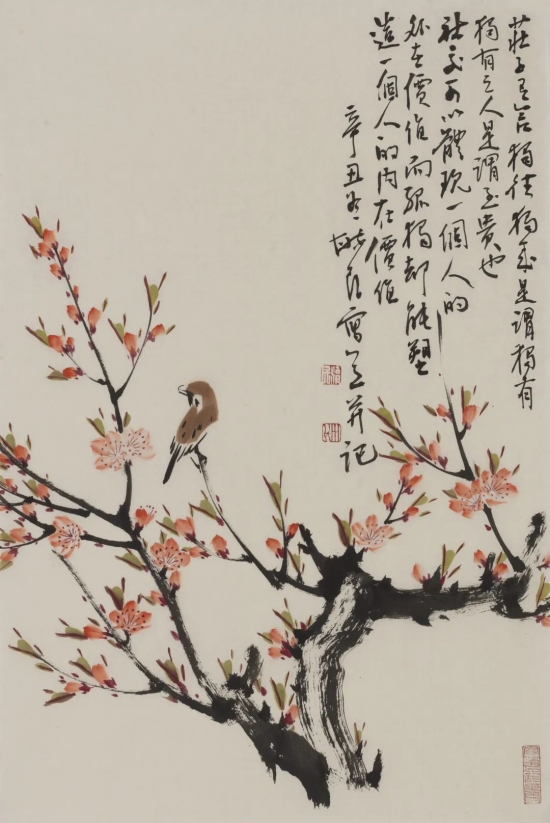 莊子有言獨往獨來是謂獨有
獨有之人是謂至貴也
社交可以體現一個人的
外在價值而孤獨卻能塑
造一個人的內在價值
辛丑冬 曉 寫意並記